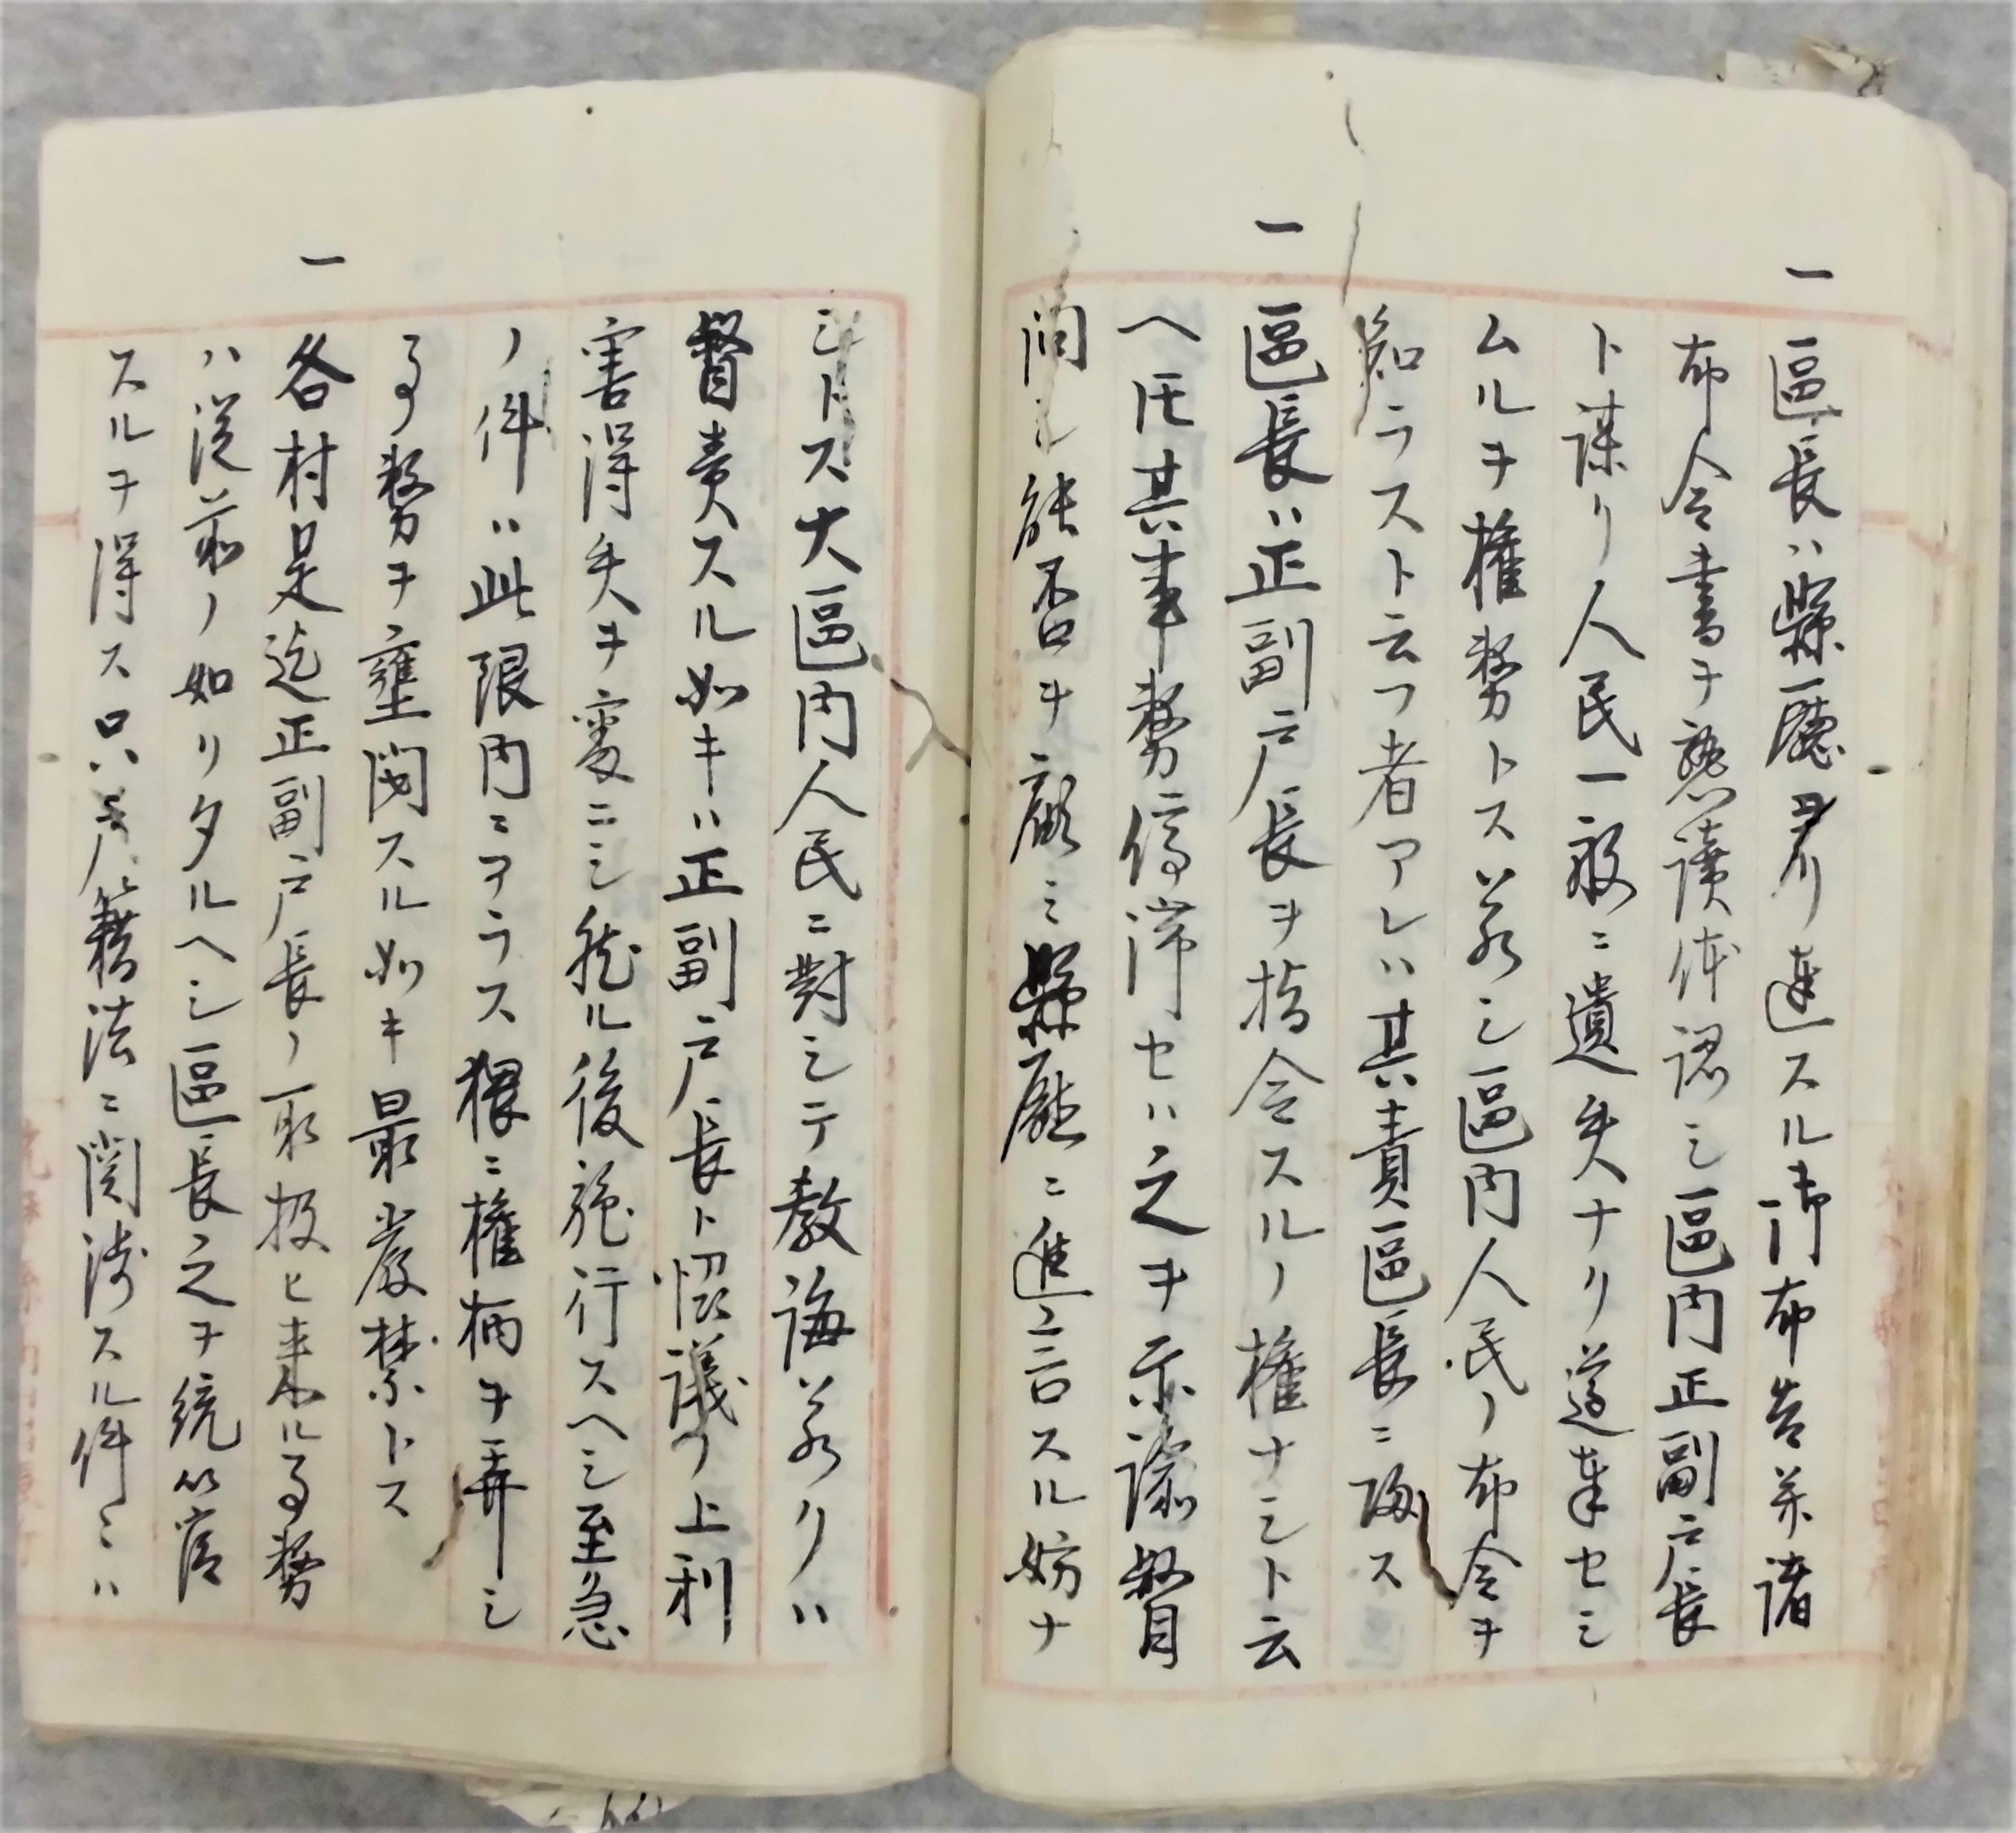 一
區長ハ縣廳ヨリ達スル御布告并諸
布令書ヲ熟讀体認シ區内正副戸長
ト謀リ人民一般ニ遺失ナリ遂達セシ
ムルヲ権勢トス若シ區内人民ノ布令ヲ
知ラスト云フ者アレハ其責區長ニ歸ス
一
區長ハ正副戸長ヲ指令スルノ権ナシト云
ヘ𪜈其事務停滞セハ之ヲ示諭督
問シ能否ヲ顧ミ縣廳ニ進言スル妨ナ
シトス大區内人民ニ對シテ教誨若クハ
督責スル如キハ正副戸長ト協議ノ上利
害得失ヲ審ニシ然ル後施行スヘシ至急
ノ件ハ此限内ニアラス猥ニ権柄ヲ弄シ
事務ヲ壅閉スル如キ最嚴禁トス
一
各村是迄正副戸長ノ取扱ヒ来ル事務
ハ従前ノ如リタルヘシ區長之ヲ統管
スルヲ得ス只戸籍法ニ関渉スル件ニハ